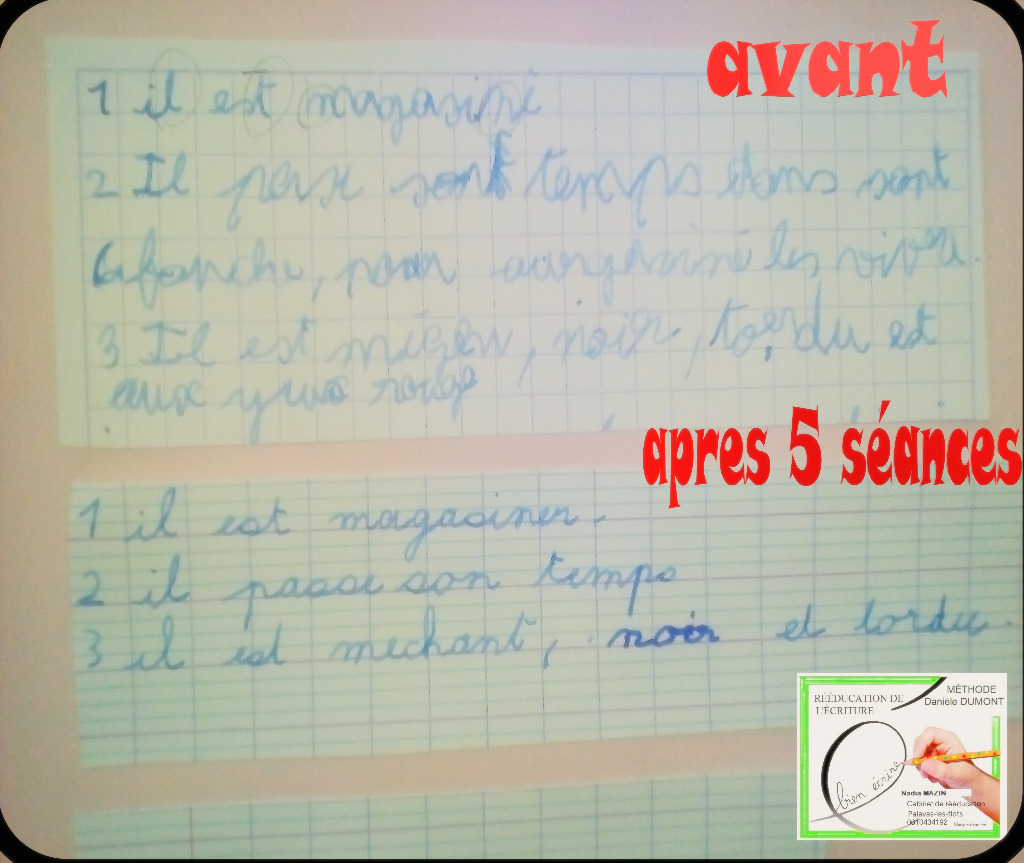 avant
1 il est magasini
2 Il passe sont temps dans sont
les
3 Il est , noir, tordu est
aux yeux rouge
apres 5 séances
1 il est magasiner.
2 il passe son temps
3 il est mechant, noir et tordu.
RÉÉDUCATION DE
L'ÉCRITURE
MÉTHODE
Danièle DUMONT
bien écrire
Nadia MAZIN
Cabinet de rééducation
Palavas-les-flots
0610434192